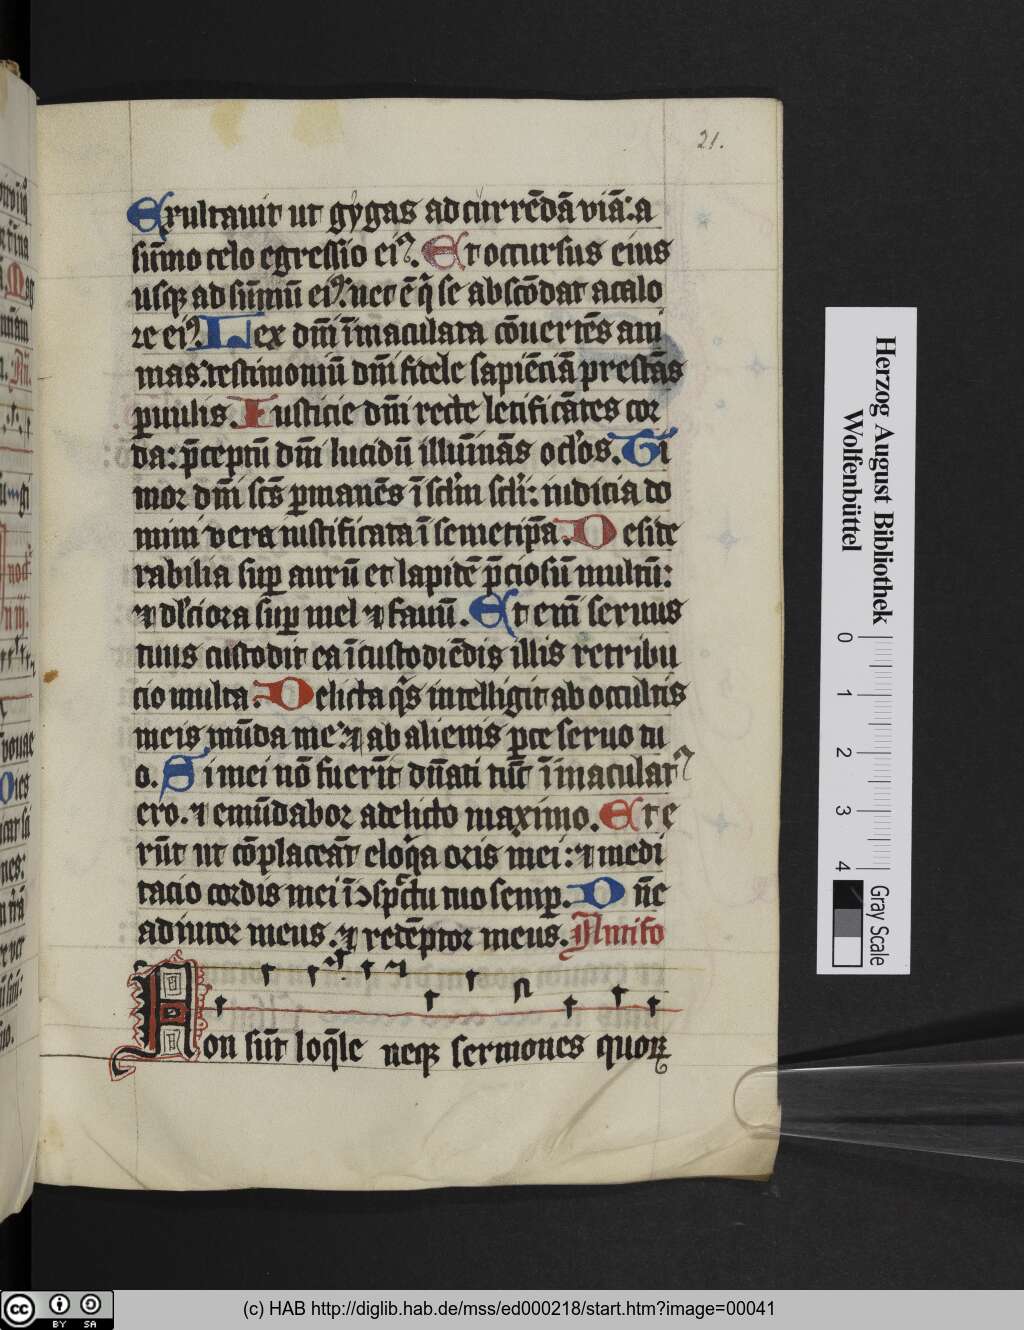 21.
Exultauit ut gygas ad currēdā viā: a
sūmo celo egressio eiꝰ. Et occursus eius
usqꝫ ad sūmū eiꝰ: nec ē q̄ se abscōdat a calo
re eiꝰ. Lex dn̄i īmaculata cōuertēs ani
mas: testimoniū dn̄i fidele sapiēciā prestās
ꝑuulis. Iusticie dn̄i recte letificātes cor
da: p̄ceptū dn̄i lucidū illūinās oclos. Ti
mor dn̄i scs̄ ꝑmanēs ī sclm̄ scli: iudicia do
mini vera iustificata ī semetip̄a. Deside
rabilia suꝑ aurū et lapidē p̄ciosū multū:
⁊ dlciora suꝑ mel ⁊ fauū. Etem̄ seruus
tuus custodit ea ī custodiēdis illis retribu
cio multa. Delicta q̄s intelligit ab occultis
meis mūda me: ⁊ ab alienis ꝑce seruo tu
o. Si mei nō fuerīt dn̄ati tūc īmaculatꝰ
ero. ⁊ emūdabor a delicto maximo. Et e
rūt ut cōplaceāt eloq̄a oris mei: ⁊ medi
tacio cordis mei ī ɔspctu tuo semꝑ. Dn̄e
adiutor meus. ⁊ redēptor meus. Antifo
Non sūt loq̄le neqꝫ sermones quoꝝ
Herzog August Bibliothek
Wolfenbüttel
0 1 2 3 4
Gray Scale
(c) HAB http://diglib.hab.de/mss/ed000218/start.htm?image=00041
cc BY SA